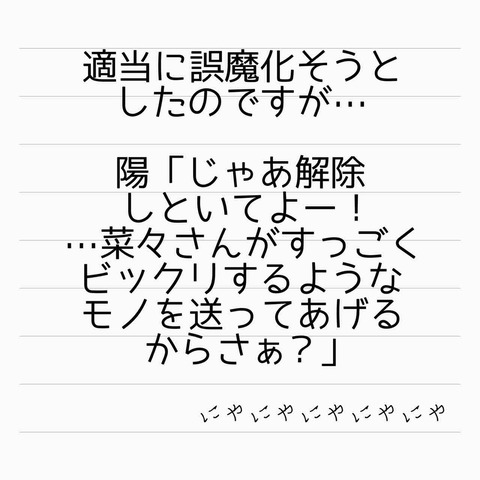 適当に誤魔化そうと
したのですが…
陽「じゃあ解除
しといてよー！
…菜々さんがすっごく
ビックリするような
モノを送ってあげる
からさぁ？」
にゃにゃにゃにゃにゃ